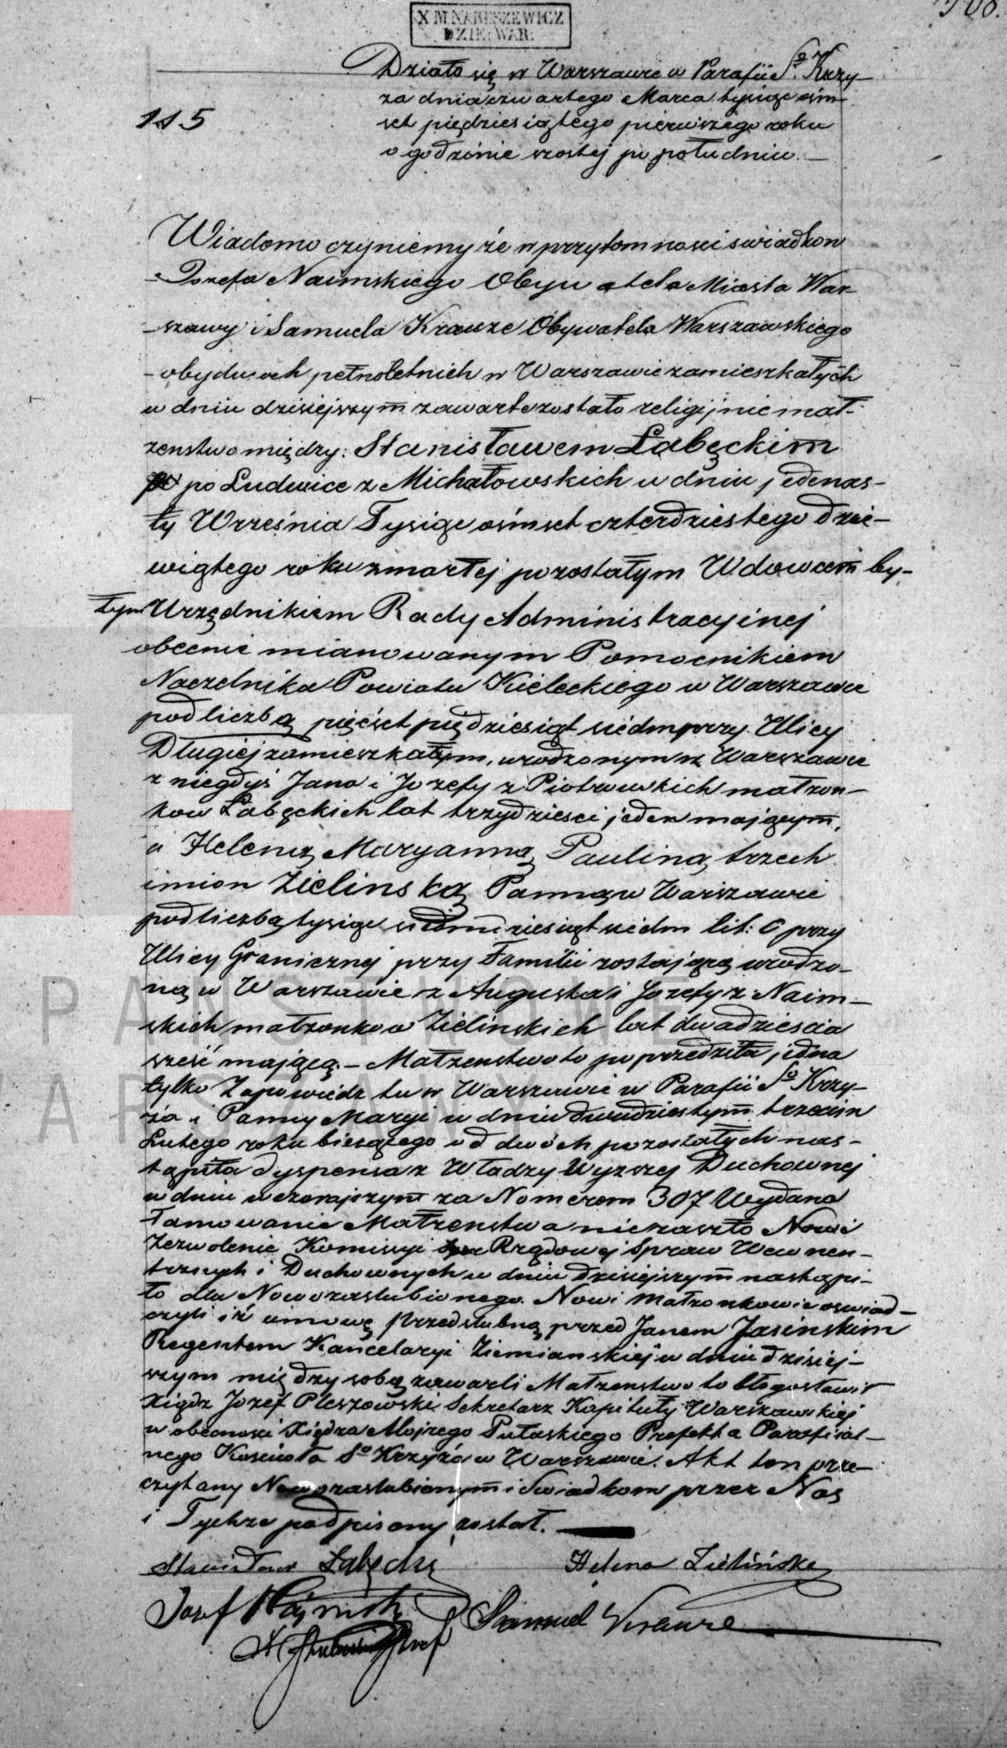 X M NARUSZEWICZ
DZIE: WAR:
Działo się w Warszawie w Parafii So Krzy-
za dnia czwartego Marca tysiąc ośm-
set piędziesiątego pierwszego roku
o godzinie szostej po południu. —
115
Wiadomo czyniemy że w przytomności swiadkow
Jozefa Naimskiego Obywatela Miasta War-
szawy i Samuela Krauze Obywatela Warszawskiego
obydwoch pełnoletnich w Warszawie zamieszkałych
w dniu dzisiejszym zawarte zostało religijnie mał-
żenstwo między: Stanisławem Łabęckim
po Ludwice z Michałowskich w dniu jedenas-
ty Września Tysiąc ośmset czterdziestego dzie-
wiątego roku zmarłej pozostałym Wdowcem by-
łym Urzędnikiem Rady Administracyjnej
obecnie mianowanym Pomocnikiem
Naczelnika Powiatu Kieleckiego w Warszawie
pod liczbą pięćset piędziesiąt siedm przy Ulicy
Długiej zamieszkałym, urodzonym w Warszawie
z niegdyś Jana i Jozefy z Piotrowskich małżon-
kow Łabęckich lat trzydziesci jeden mającym,
a Heleną Maryanną Pauliną trzech
imion Zielinską Panną w Warszawie
pod liczbą tysiąc siedmdziesiąt siedm lit: C przy
Ulicy Granicznej przy Familii zostającą urodzo-
ną w Warszawie z Augusta i Jozefy z Naim-
skich małżonkow Zielinskich lat dwadziescia
sześć mającą. — Małżenstwo to poprzedziła jedna
tylko Zapowiedź tu w Warszawie w Parafii So Krzy-
ża i Panny Maryi w dniu dwudziestym trzecim
Lutego roku bieżącego od dwóch pozostałych nas-
tąpiła dyspensa z Władzy Wyższej Duchownej
w dniu wczorajszym za Nomerem 307 Wydana
Tamowanie Małżenstwa nie zaszło Nowi
Zezwolenie Komisyi Rządowej Spraw Wewnen-
trznych i Duchownych w dniu dzisiejszym nastąpi-
ło dla Nowozaslubionego. Nowi małżonkowie oswiad-
czyli iż umowę przedslubną przed Janem Jasinskim
Regentem Kancelaryi Ziemianskiej w dniu dzisiej-
szym między sobą zawarli Małżenstwo to błogosławił
Xiądz Jozef Pleszowski Sekretarz Kapituły Warszawskiej
w obecnosci Xiędza Alojzego Pułaskiego Prefekta Parafial-
nego Kościoła So Krzyża w Warszawie. Akt ten prze-
czytany Nowozaslubionym i Swiadkom przez Nas
i Tychże podpisany został. —
Stanisław Łabęcki Helena Zielińska
Jozef Naimski Samuel Krauze
PAŃSTWOWE
ARCH